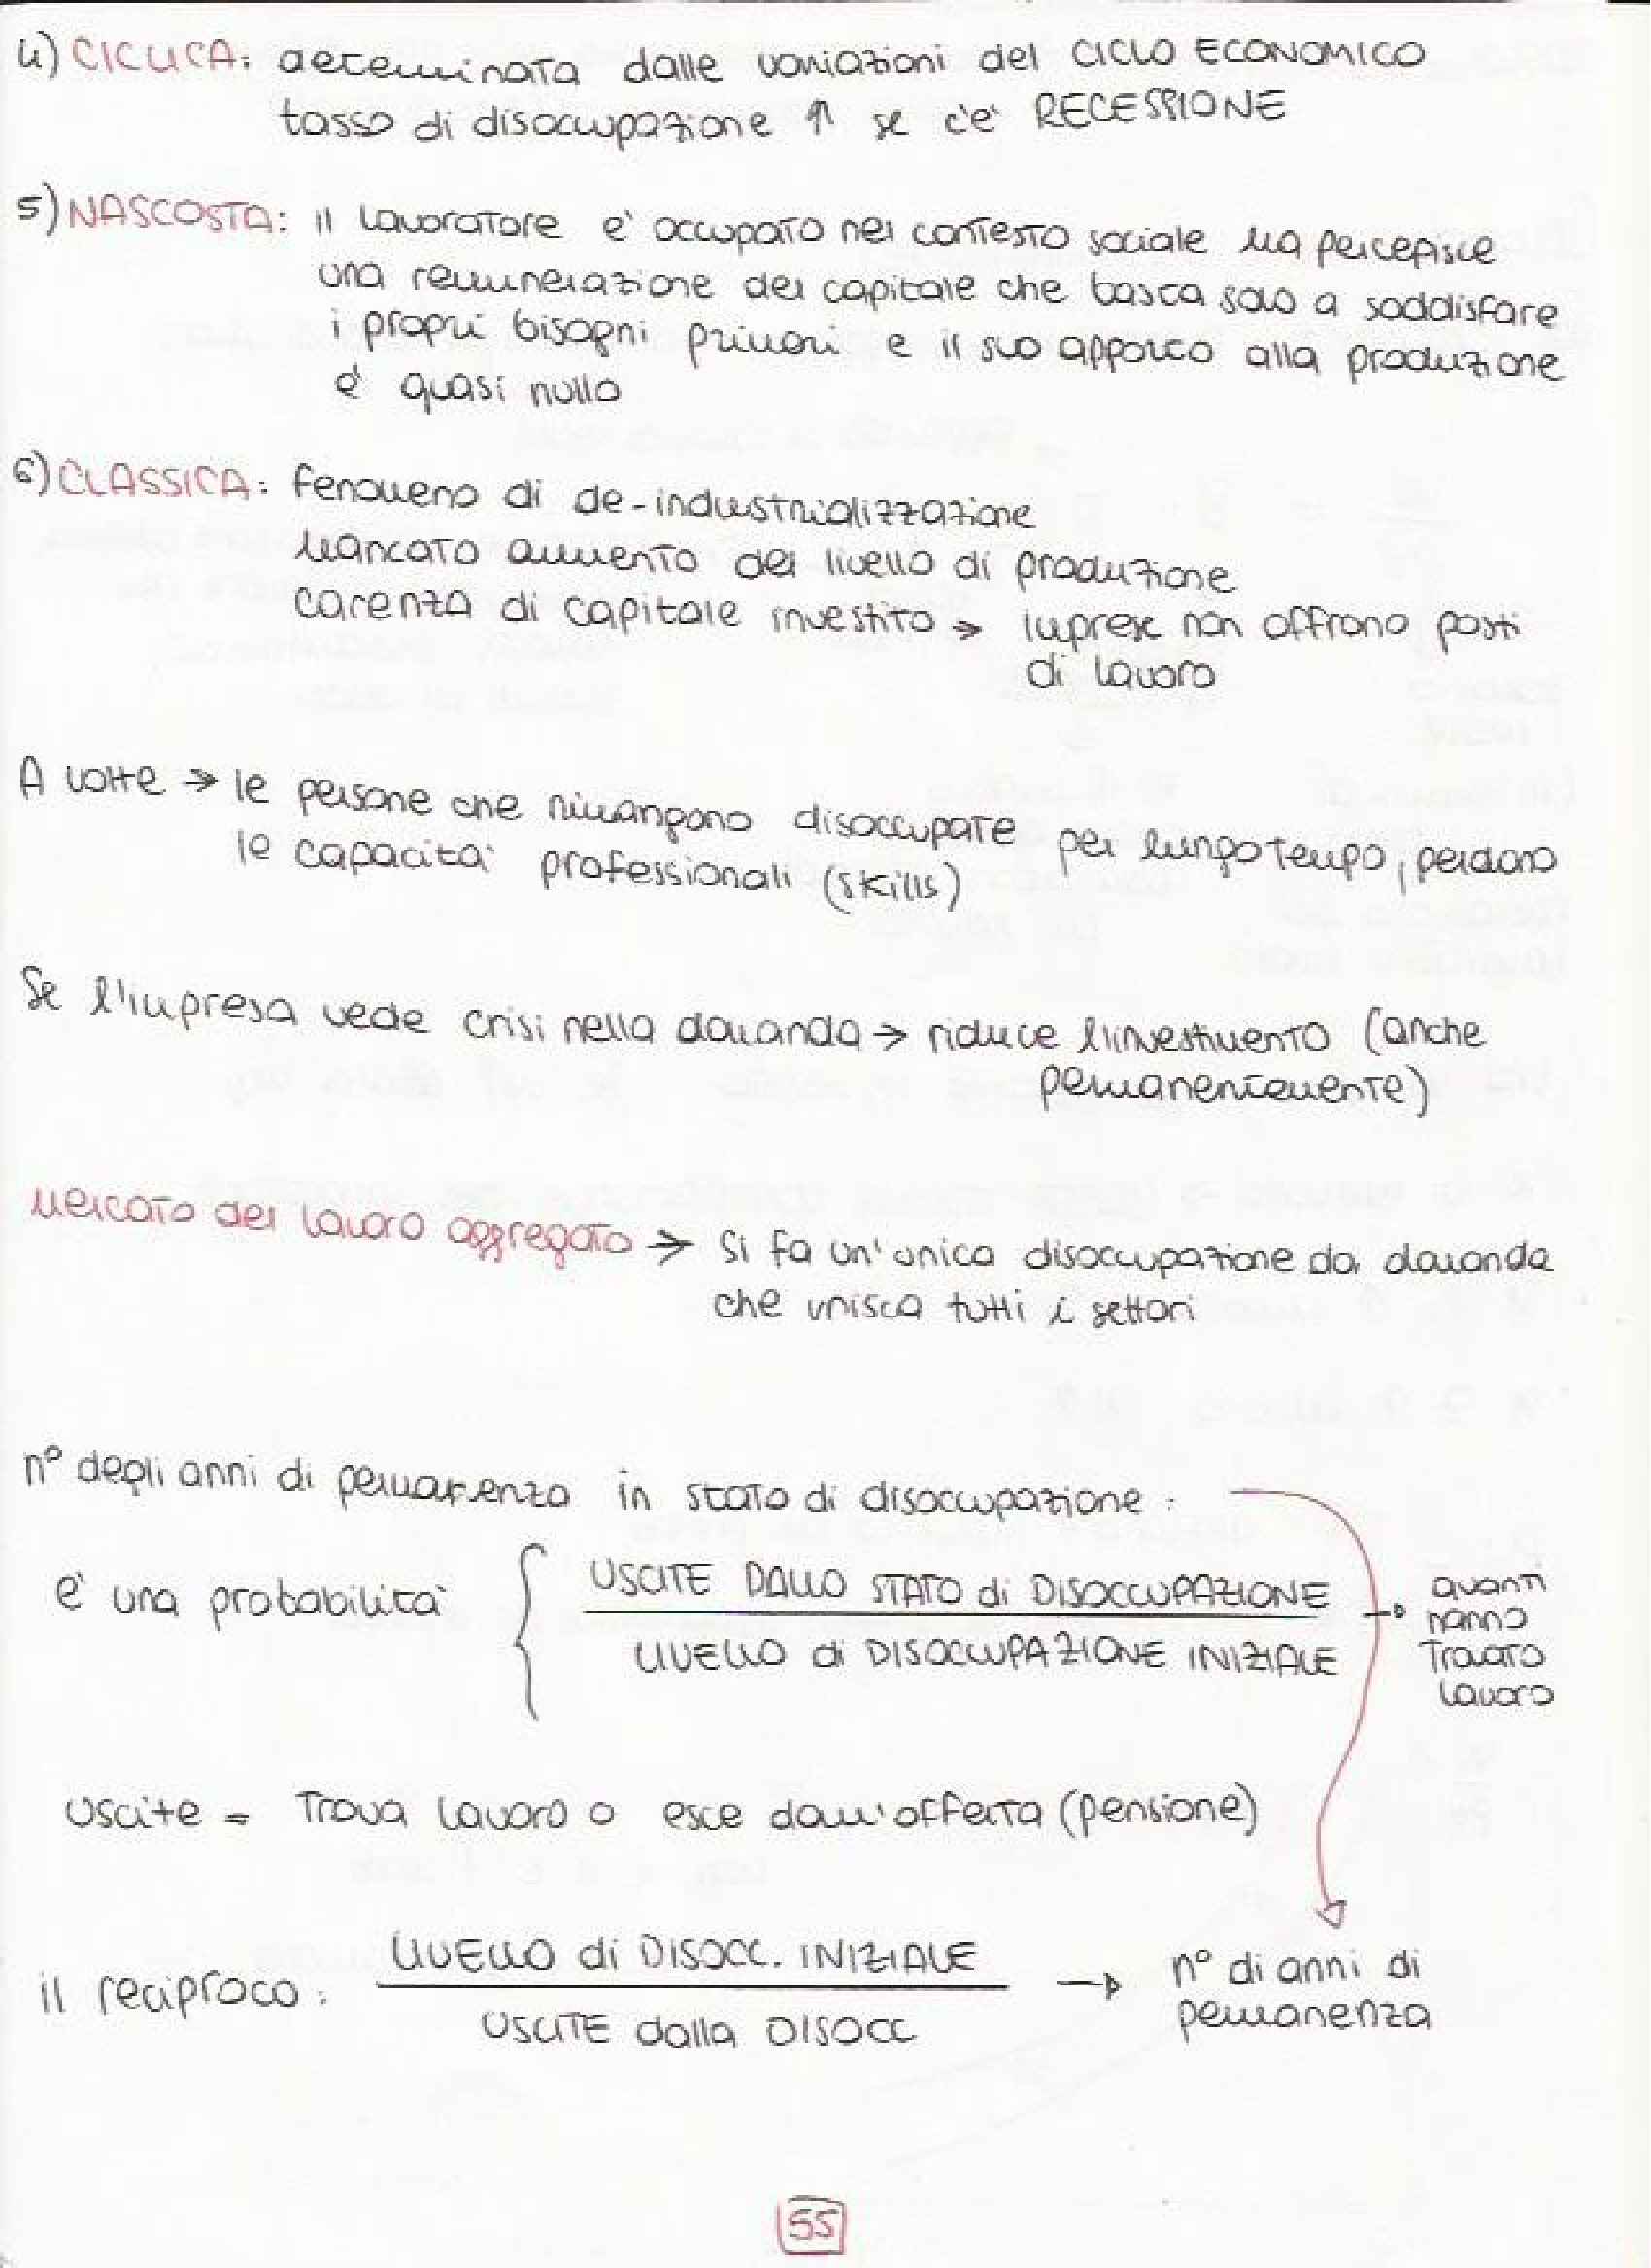 4) CICLICA: determinata dalle variazioni del CICLO ECONOMICO
tasso di disoccupazione ↑ se c'è RECESSIONE
5) NASCOSTA: il lavoratore è occupato nel contesto sociale ma percepisce
una remunerazione del capitale che basta solo a soddisfare
i propri bisogni primari e il suo apporto alla produzione
è quasi nullo
6) CLASSICA: fenomeno di de-industrializzazione
mancato aumento del livello di produzione
carenza di capitale investito → imprese non offrono posti
di lavoro
A volte → le persone che rimangono disoccupate per lungo tempo, perdono
le capacità professionali (skills)
Se l'impresa vede crisi nella domanda → riduce l'investimento (anche
permanentemente)
Mercato del lavoro aggregato → si fa un'unica disoccupazione da domanda
che unisca tutti i settori
n° degli anni di permanenza in stato di disoccupazione:
è una probabilità { USCITE DALLO STATO di DISOCCUPAZIONE
LIVELLO di DISOCCUPAZIONE INIZIALE
→ quanti
hanno
trovato
lavoro
uscite = trova lavoro o esce dall'offerta (pensione)
il reciproco: LIVELLO di DISOCC. INIZIALE
USCITE dalla DISOCC
→ n° di anni di
permanenza
55